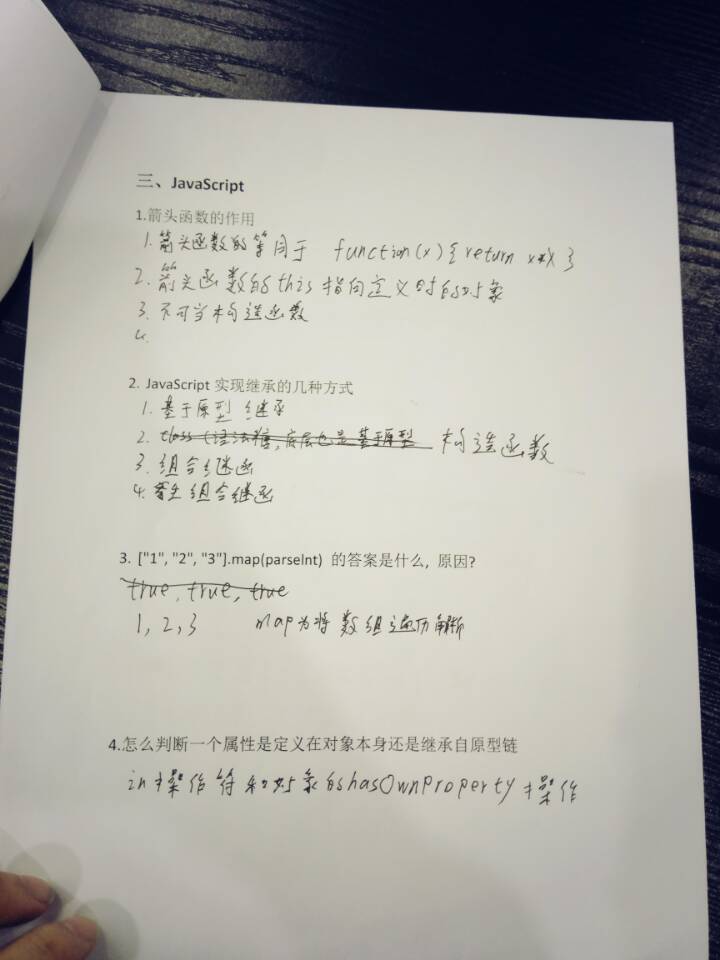 三、JavaScript
1.箭头函数的作用
1.箭头函数的等同于 function(x){return x*x}
2.箭头函数的this指向定义时的对象
3.不可当构造函数
4.
2. JavaScript 实现继承的几种方式
1.基于原型 继承
2.class(语法糖,底层也是基于原型 构造函数
3.组合继函
4.寄生组合继函
3. ["1", "2", "3"].map(parseInt) 的答案是什么, 原因?
true, true, true
1, 2, 3 map为将数组遍历解析
4.怎么判断一个属性是定义在对象本身还是继承自原型链
in操作符和对象的hasOwnProperty操作